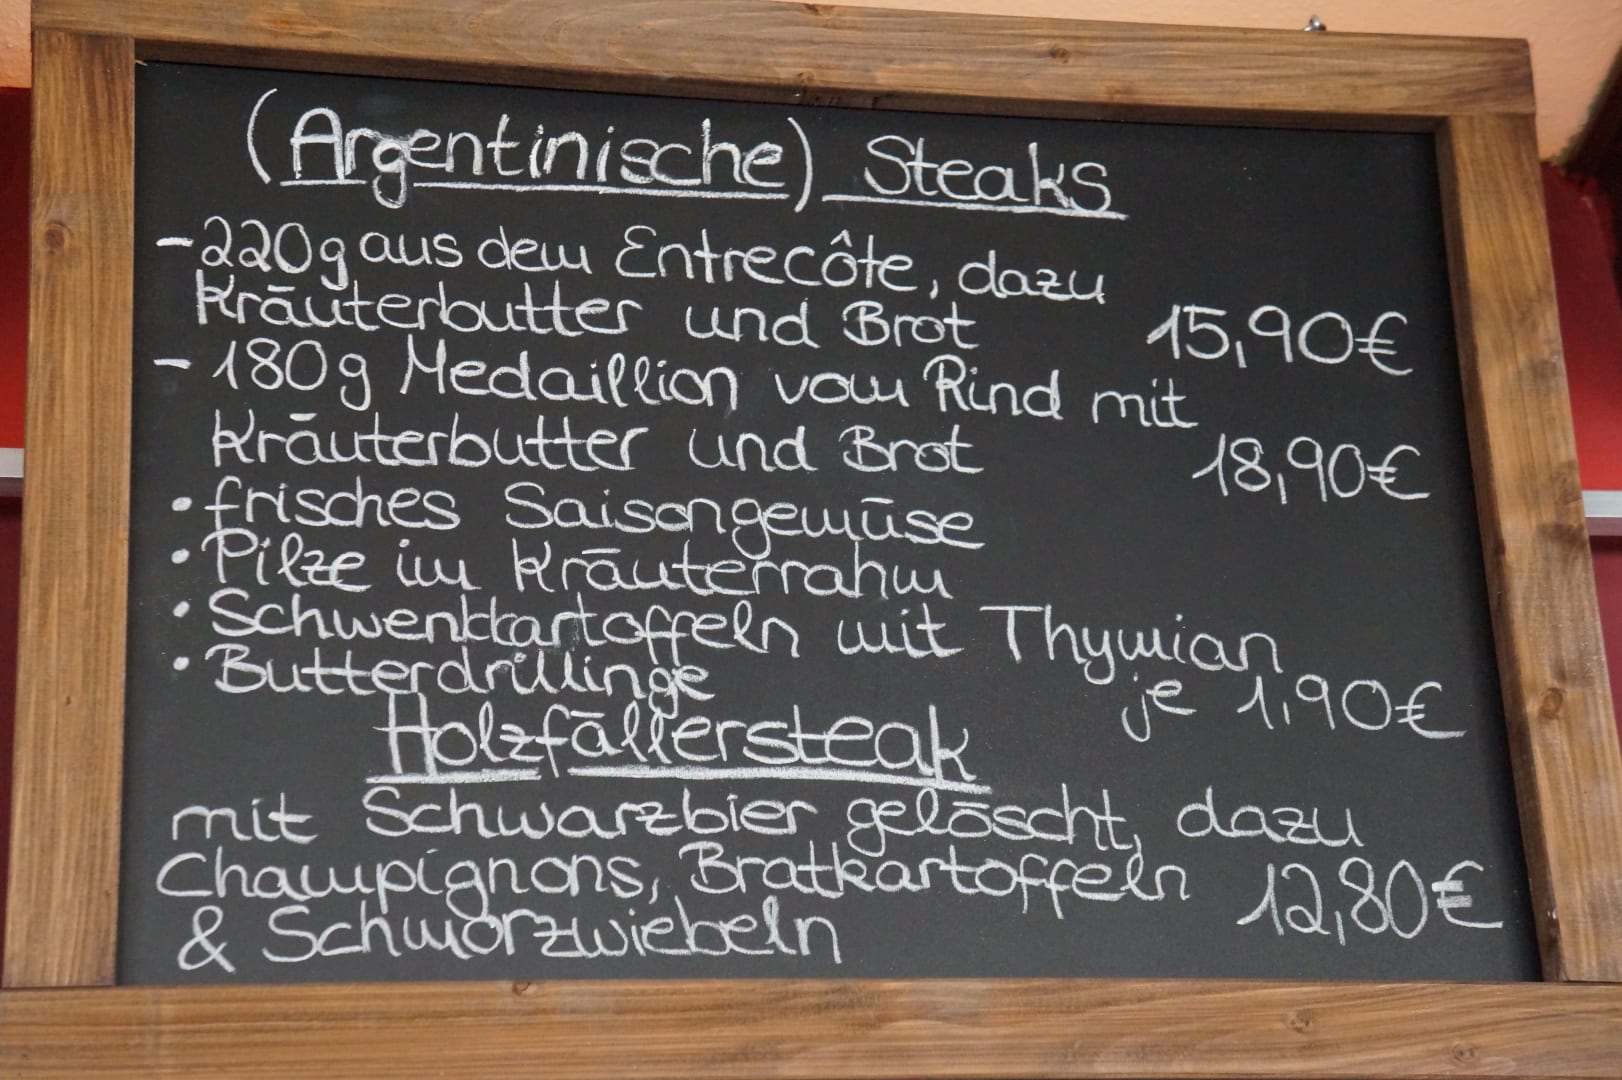 (Argentinische) Steaks
- 220g aus dem Entrecôte, dazu
Kräuterbutter und Brot 15,90€
- 180g Medaillion vom Rind mit
Kräuterbutter und Brot 18,90€
• frisches Saisongemüse
• Pilze im Kräuterrahm
• Schwenkkartoffeln mit Thymian
• Butterdrillinge je 1,90€
Holzfällersteak
mit Schwarzbier gelöscht, dazu
Champignons, Bratkartoffeln 12,80€
& Schmorzwiebeln